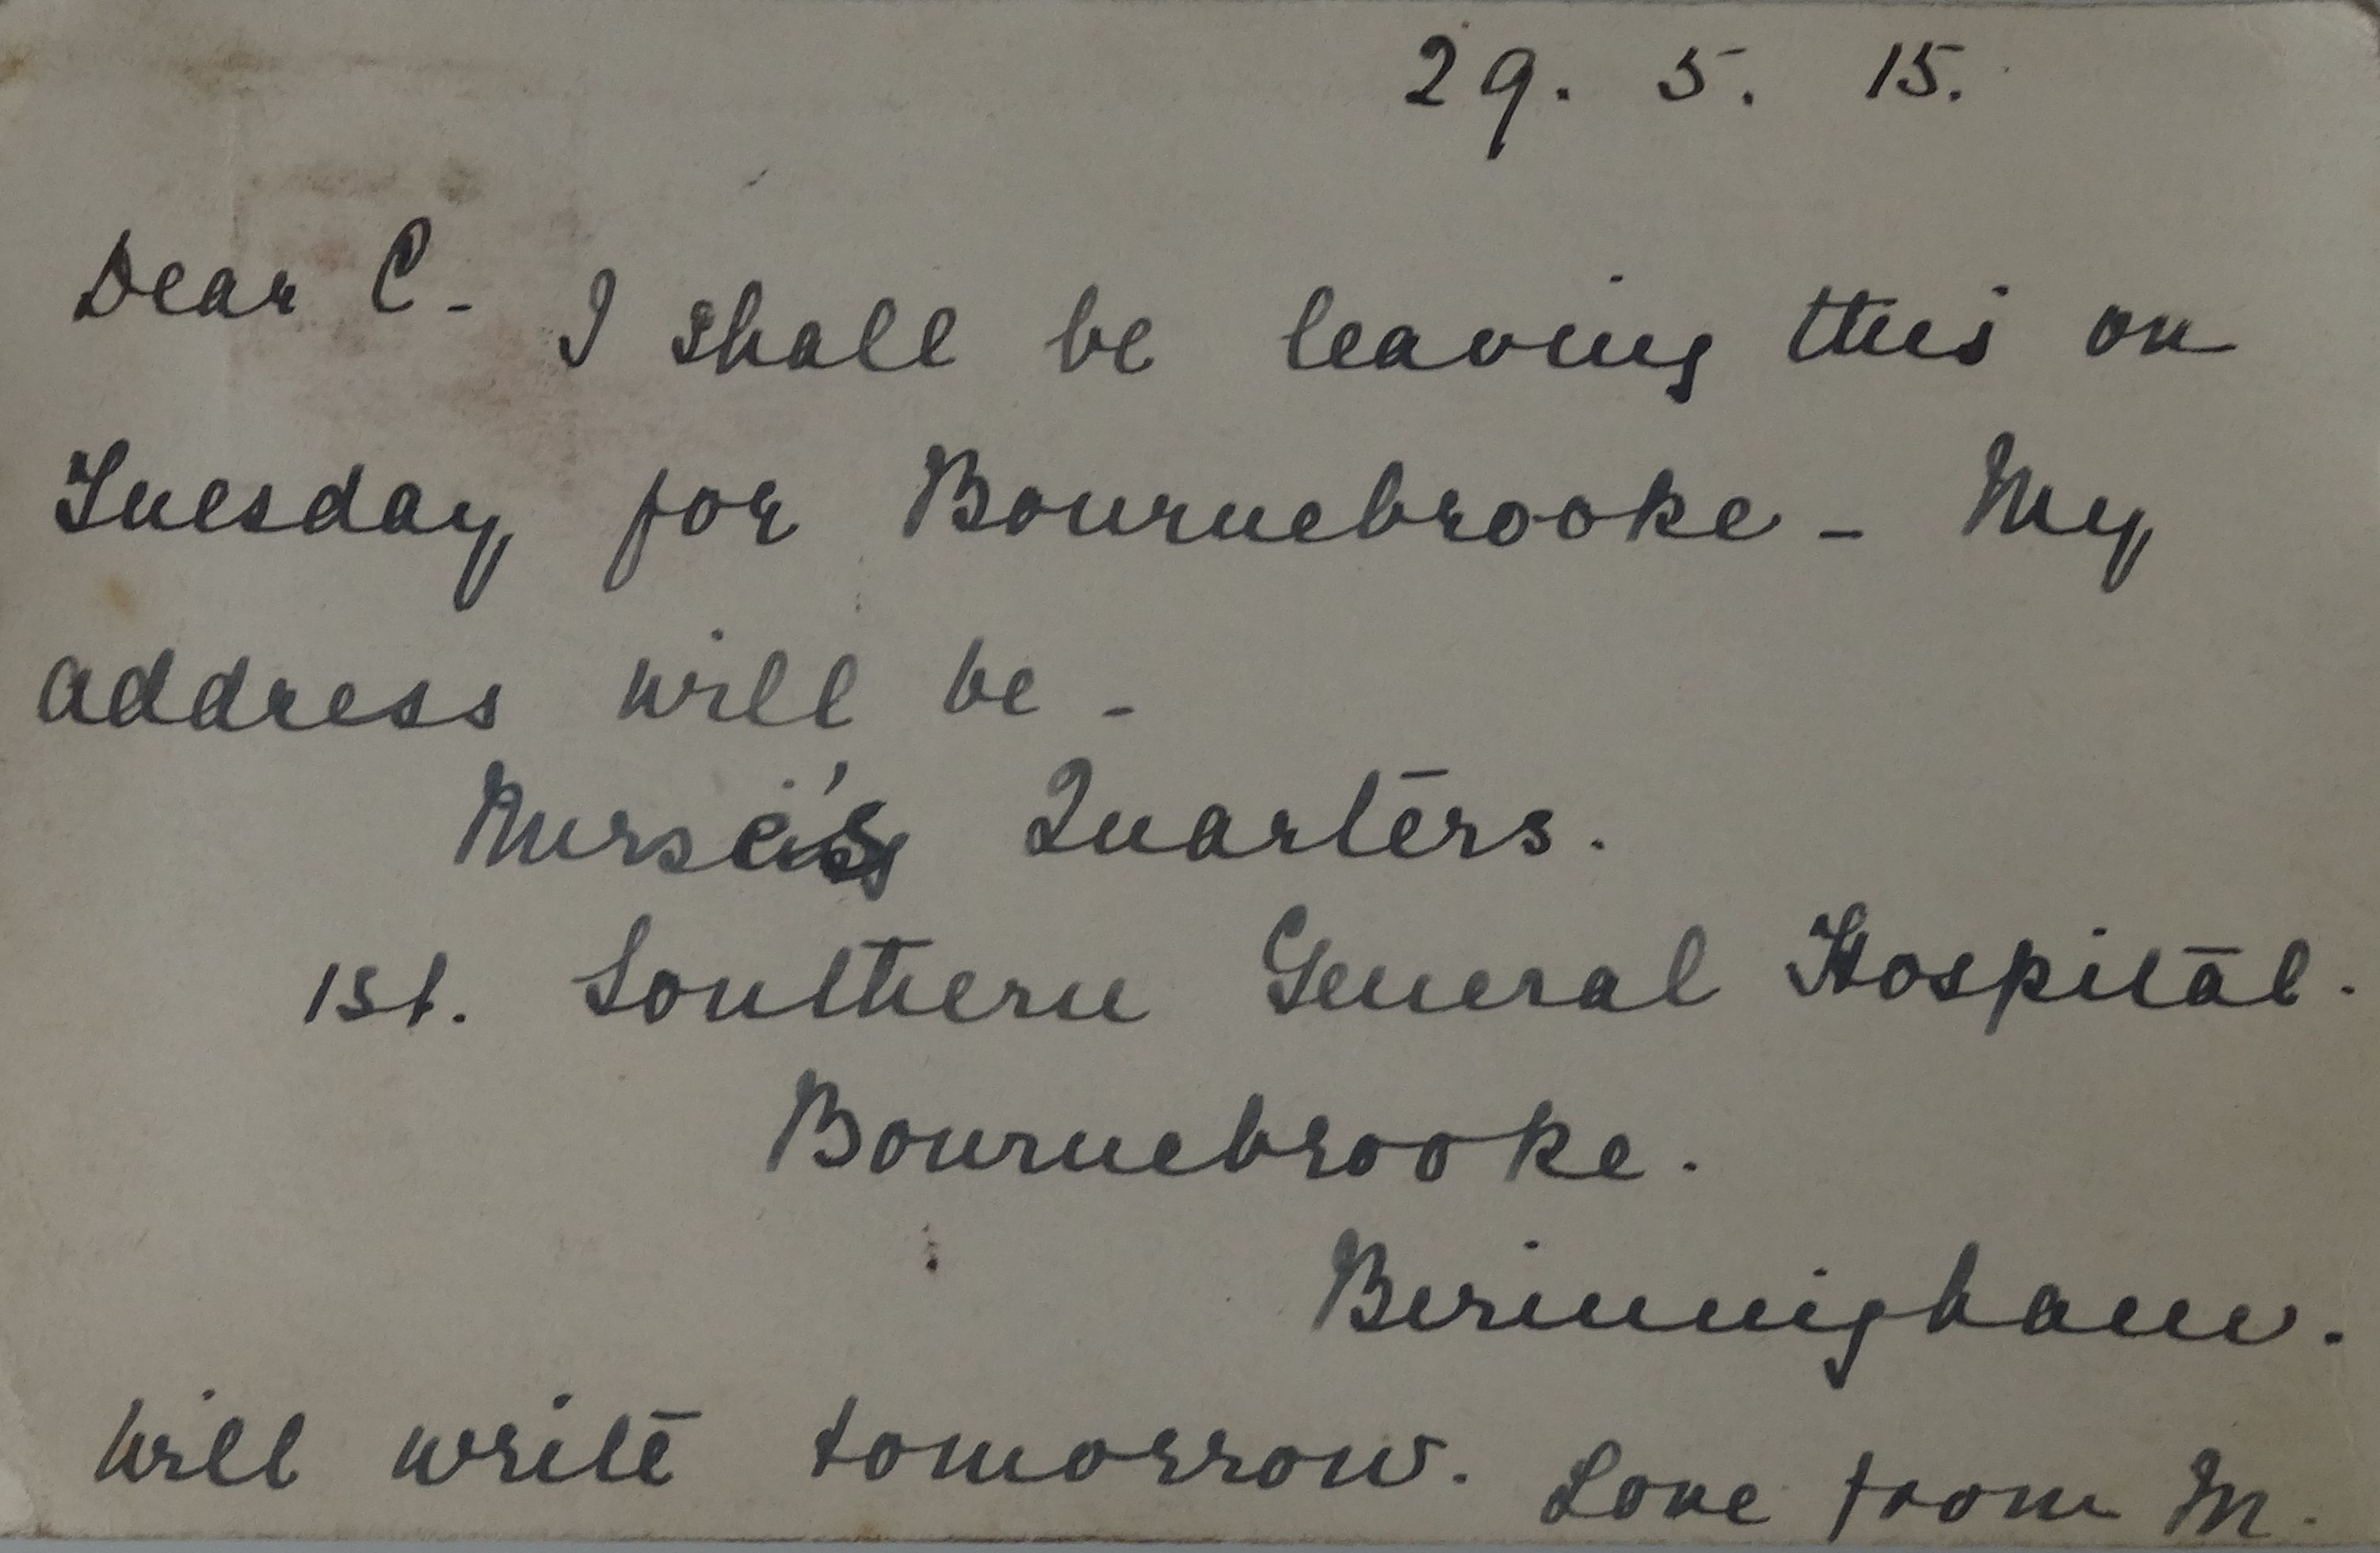 29. 5. 15.
Dear C. I shall be leaving this on
Tuesday for Bournebrooke - My
address will be -
Nurse's Quarters.
1st. Southern General Hospital.
Bournebrooke.
Birmingham.
Will write tomorrow. Love from M.